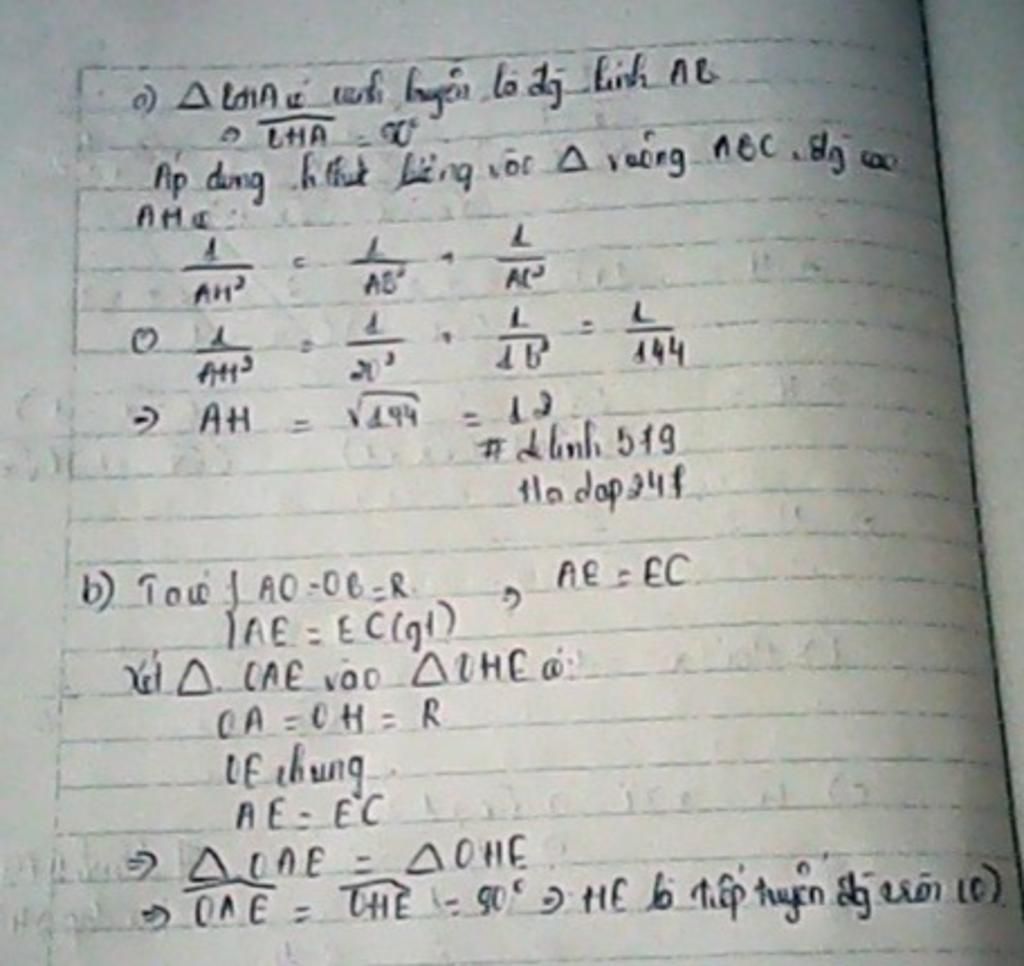 a) Δ BHA có cạnh huyền là đg kính AB
⇒ BHA = 90°
Áp dụng h thức lượng vào Δ vuông ABC, đg cao
AH có:
1/AH² = 1/AB² + 1/AC²
⇔ 1/AH² = 1/20² + 1/15² = 1/144
⇒ AH = √144 = 12
# Linh 519
Hoidap241
b) Ta có { AO = OB = R , AE = EC
{ AE = EC (gt)
Xét Δ OAE vào Δ OHE có:
OA = OH = R
OE chung
AE = EC
⇒ Δ OAE = Δ OHE
⇒ OAE = OHE = 90° ⇒ HE là tiếp tuyến đg tròn (O)